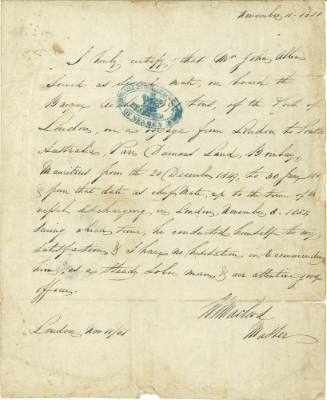 November 11 - 18
I hereby certify, that Mr John Allen
served as Second mate, on board the
Barque tons, of the Port of
London, on a voyage from London to South
Australia, Van Diemans Land, Bombay,
Mauritius from the 20 December 1849, to 30
& from that date as chief Mate, up to the time of the
vessel discharging, in London, November 8. 
during which time, he conducted himself to my
satisfaction, & I have no hesitation, in recommending
him, as a steady sober man, & an attentive good
officer.
Master
London Nov 11/